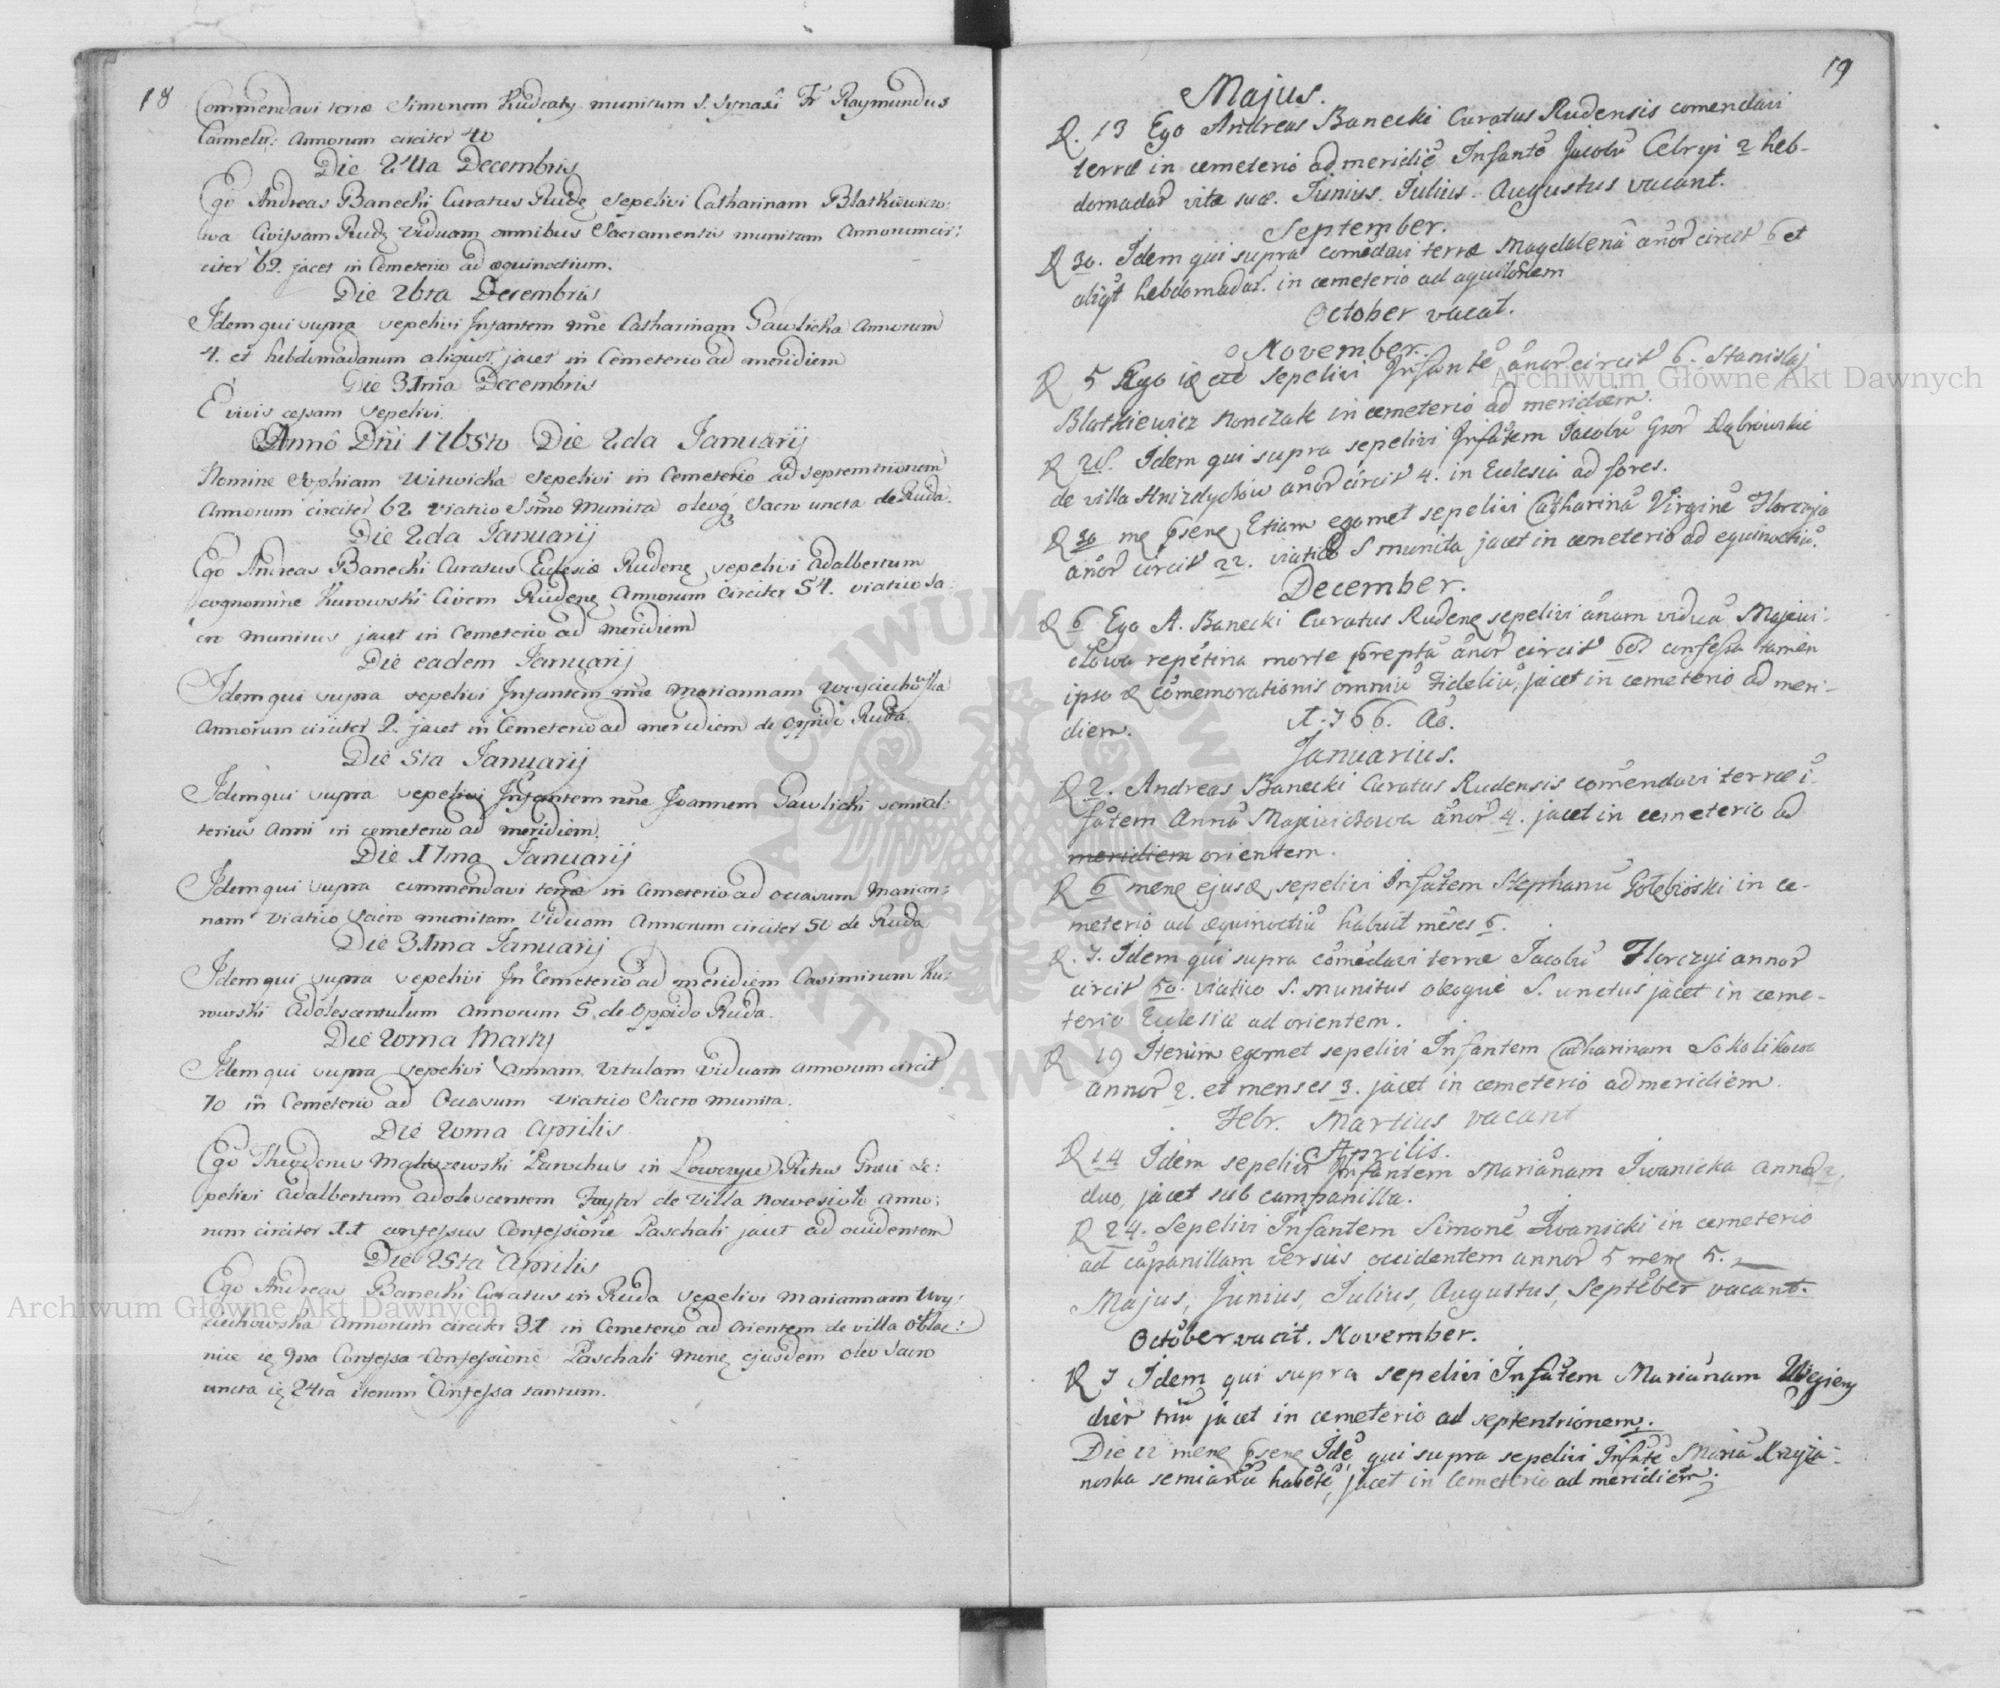 18
Commendavi terræ Simonem Kudraty munitum S. Synaxi Fr Raymundus
Carmelit: Annorum circiter 40
Die 24ta Decembris
Ego Andreas Banecki Curatus Rudę sepelivi Catharinam Blatkiewicz:
wa Civissam Rudę viduam omnibus Sacramentis munitam Annorum cir:
citer 69. jacet in Cemeterio ad æquinoctium.
Die 26ta Decembris
Idem qui supra sepelivi Infantem nñe Catharinam Gawlicka Annorum
4. et hebdomadarum aliquot jacet in Cemeterio ad meridiem
Die 31ma Decembris
E vivis cessam sepelivi.
Annô Dñi 1765to Die 2da Januarij
Nomine Sophiam Witwicka sepelivi in Cemeterio ad septemtrionem
Annorum circiter 62 viatico SSmo munita oleoq́ Sacro uncta de Ruda.
Die 2da Januarij
Ego Andreas Banecki Curatus Eclesiæ Rudenę sepelivi Adalbertum
cognomine Kurowski Civem Rudenę Annorum circiter 54. viatico Sa
cro munitus jacet in Cemeterio ad meridiem
Die eadem Januarij
Idem qui supra sepelivi Infantem nñe Mariannam Woyciechowska
Annorum circiter 2. jacet in Cemeterio ad meridiem de Oppido Ruda.
Die 5ta Januarij
Idem qui supra sepelivi Infantem nñe Joannem Gawlicki semial:
terius Anni in cemeterio ad meridiem.
Die 17ma Januarij
Idem qui supra commendavi terræ in Cemeterio ad occasum Marian:
nam viatico Sacro munitam viduam Annorum circiter 50 de Ruda
Die 31ma Januarij
Idem qui supra sepelivi In Cemeterio ad meridiem Casimirum Ku:
rowski Adolescentulum Annorum 5. de Oppido Ruda.
Die 20ma Martij
Idem qui supra sepelivi Annam Vitulam viduam annorum circit
70 in Cemeterio ad Occasum viatico Sacro munita.
Die 20ma Aprilis
Ego Theodorus Maluszewski Parochus in Lowczyce Ritus Græci Se:
pelivi Adalbertum Adolescentem Fayfor de villa Nowesioło anno:
rum circiter 11 confessus Confessione Paschali jacet ad occidentem
Die 25ta Aprilis
Ego Andreas Banecki Curatus in Ruda sepelivi Mariannam Woy:
ciechowska Annorum circiter 31 in Cemeterio ad Orientem de villa Obłaz:
nice ię 9na Confessa Confessione Paschali Mensę ejusdem oleo Sacro
uncta ię 24ta iterum Confessa tantum.
19
Majus.
D. 13 Ego Andreas Banecki Curatus Rudensis comendavi
terræ in cemeterio ad meridiē Infantē Jacobū Celryi 2 heb-
domadar vitæ suæ. Junius. Julius. Augustus vacant.
September.
D 30. Idem qui supra comēdavi terræ Magdalenā añor circit 6 et
aliqt hebdomadar. in cemeterio ad aquilonem
October vacat.
November.
D 5 Ego sepelivi Infantē añor circit 6. Stanislaj
Blatkiewicz Konczak in cemeterio ad meridiem.
D 25. Idem qui supra sepelivi Infātem Jacobū Gsor Dąbrowskie
de villa Hnizdychów añor circit 4. in Ecclesia ad fores.
D 30 Etiam egomet sepelivi Catharinā Virginē Florczyja
añor circit 22. viatico S munita, jacet in cemeterio ad equinoctiū.
December.
D 6 Ego A. Banecki Curatus Rudenę sepelivi añam viduā Majewi-
czowa repetina morte prepta añor circit 60. confessa tamen
ipso comemorationis omniū Fideliū, jacet in cemeterio ad meri-
diem.
A. 1766. Ao.
Januarius.
D 2. Andreas Banecki Curatus Rudensis comendavi terræ ī-
fātem Annā Majewiczowa añor 4. jacet in cemeterio ad
meridiem orientem.
D 6 mene ejusę sepelivi Infātem Stephanū Gołębioski in ce-
meterio ad æquinoctiū habuit mēses 6.
D. 7. Idem qui supra comēdavi terræ Jacobū Florczyi annor
circit 50. viatico S. munitus oleoque S. unctus jacet in ceme-
terio Ecclesiæ ad orientem.
D 19 Iterum egomet sepelivi Infantem Catharinam Sokolikowa
annor 2. et menses 3. jacet in cemeterio ad meridiem.
Febr. Martius vacant
Aprilis.
D 14 Idem sepelivi Infantem Mariānam Iwanicka annor 2,
duo, jacet sub campanilla.
D 24. Sepelivi Infantem Simonē Iwanicki in cemeterio
ad cāpanillam versus occidentem annor 5 mene 5.
Majus, Junius, Julius, Augustus, Septēber vacant.
Octōber vacat. November.
D 7 Idem qui supra sepelivi Infātem Mariānam
dier triū jacet in cemeterio ad septentrionem.
Die 22 mene Idē qui supra sepelivi Infātē Mariā Krzyża-
noska semiañū habētē, jacet in Cemeterio ad meridiēm.
Archiwum Główne Akt Dawnych
Archiwum Główne Akt Dawnych
ARCHIWUM GŁÓWNE AKT DAWNYCH